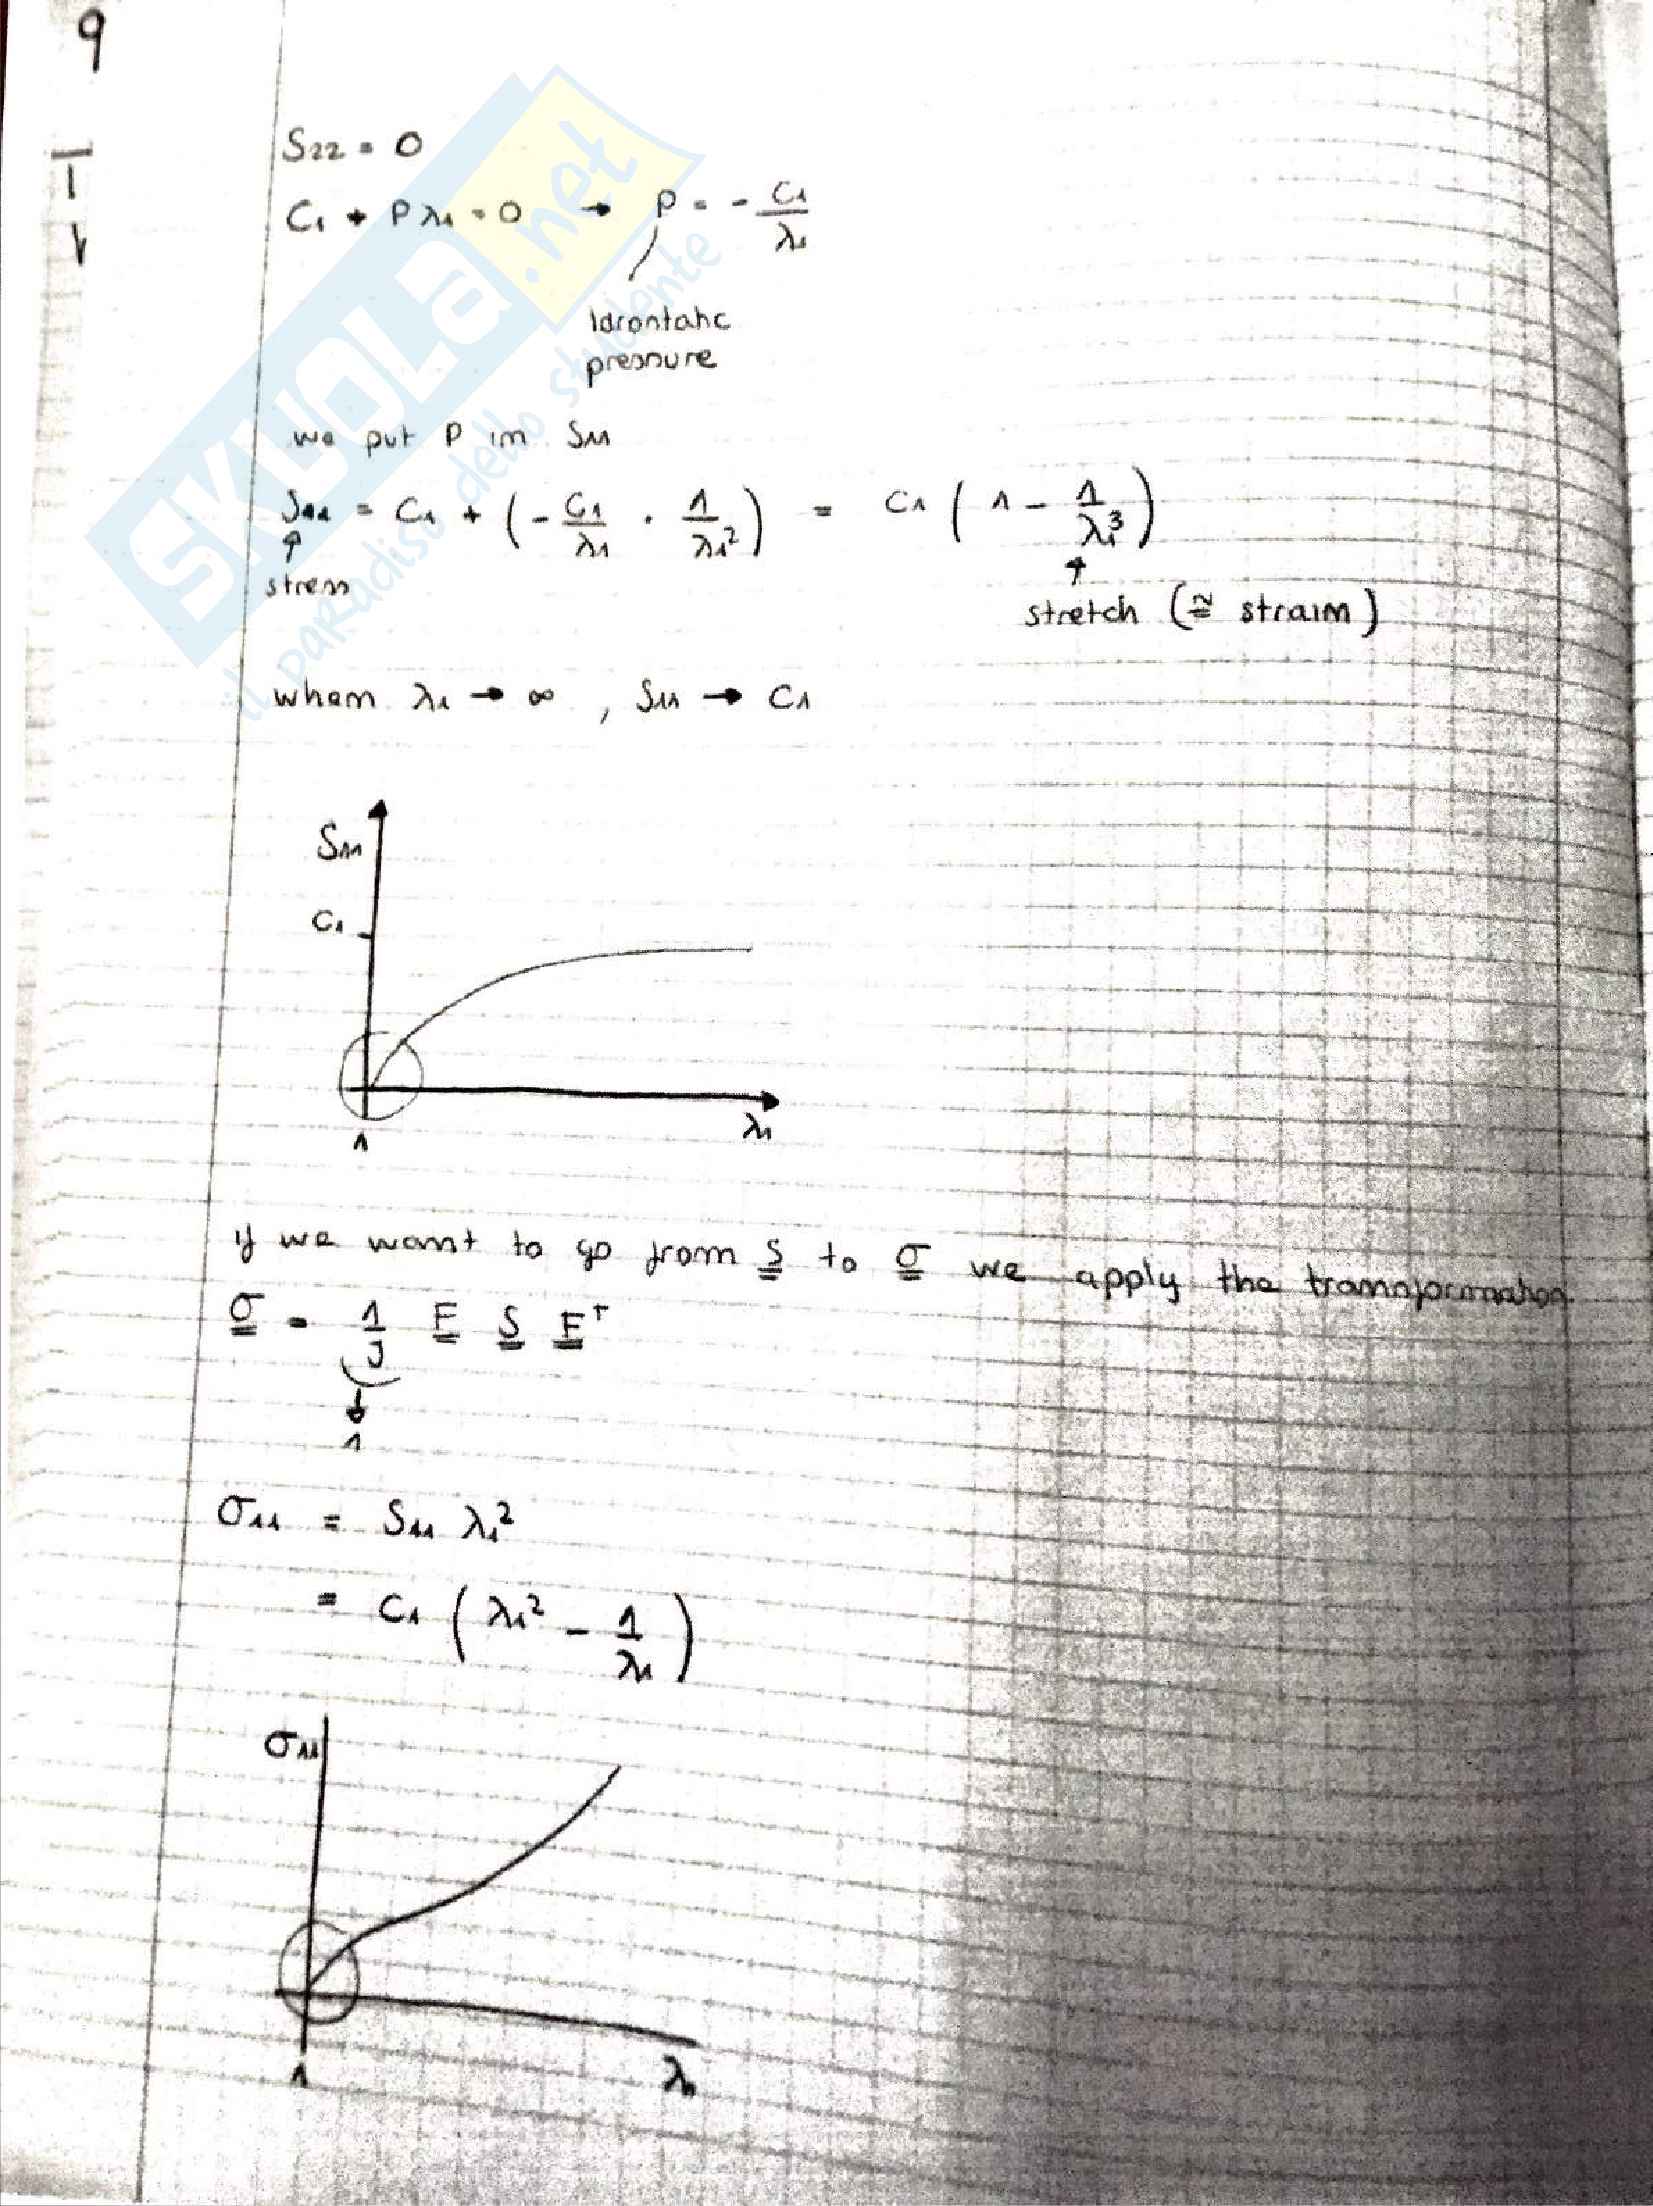 9
S22 = 0
C1 + P λ1 = 0 → P = - C1/λ1
Idrontatic
pressure
we put P in S11
S11 = C1 + (- C1/λ1 · 1/λ1²) = C1 (1 - 1/λ1³)
↑ ↑
stress
stretch (≅ strain)
when λ1 → ∞ , S11 → C1
S11
C1
λ1
1
if we want to go from S to σ we apply the transformation
σ = 1/J F S Fᵀ
↓
1
σ11 = S11 λ1²
= C1 (λ1² - 1/λ1)
σ11
1
λ1
SKUOLA.net
il paradiso dello studente